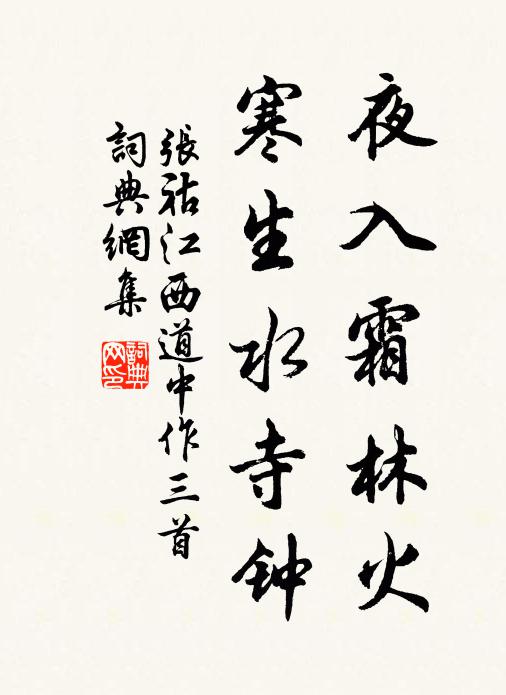 夜入霜林火
寒生水寺钟
張祜江西道中作三首
詞典網集
詞典网印